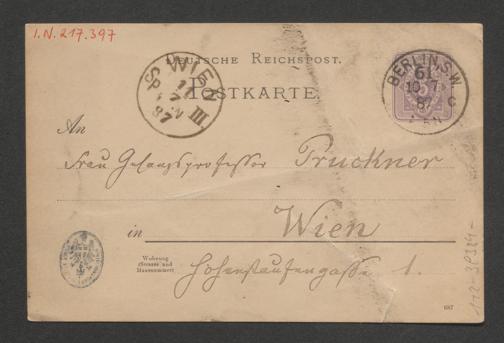 I.N. 217.397
DEUTSCHE REICHSPOST.
POSTKARTE.
WIEN
III.
87
BERLIN, S.W.
61
10 7
87
C
An
Frau Gesangsprofessor Pruckner
in Wien
Wohnung
(Strasse und
Hausnummer)
Hohenstaufengasse 1.
687